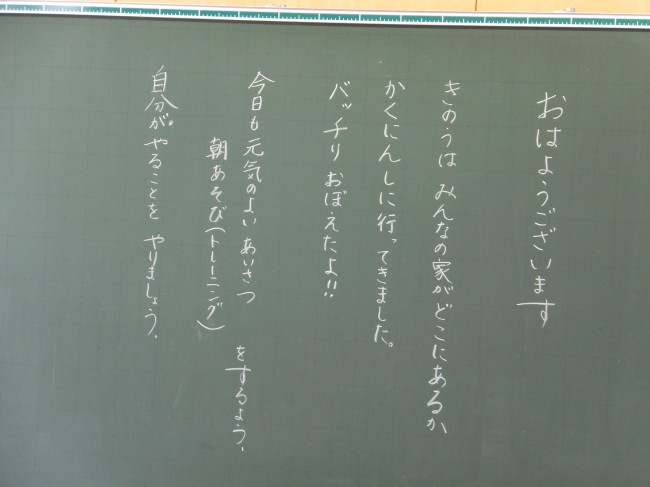 おはようございます
きのうは みんなの家がどこにあるか
かくにんしに行ってきました。
バッチリ おぼえたよ!!
今日も 元気のよい あいさつ
朝あそび(トレーニング)
をするよう、
自分が やることを やりましょう、